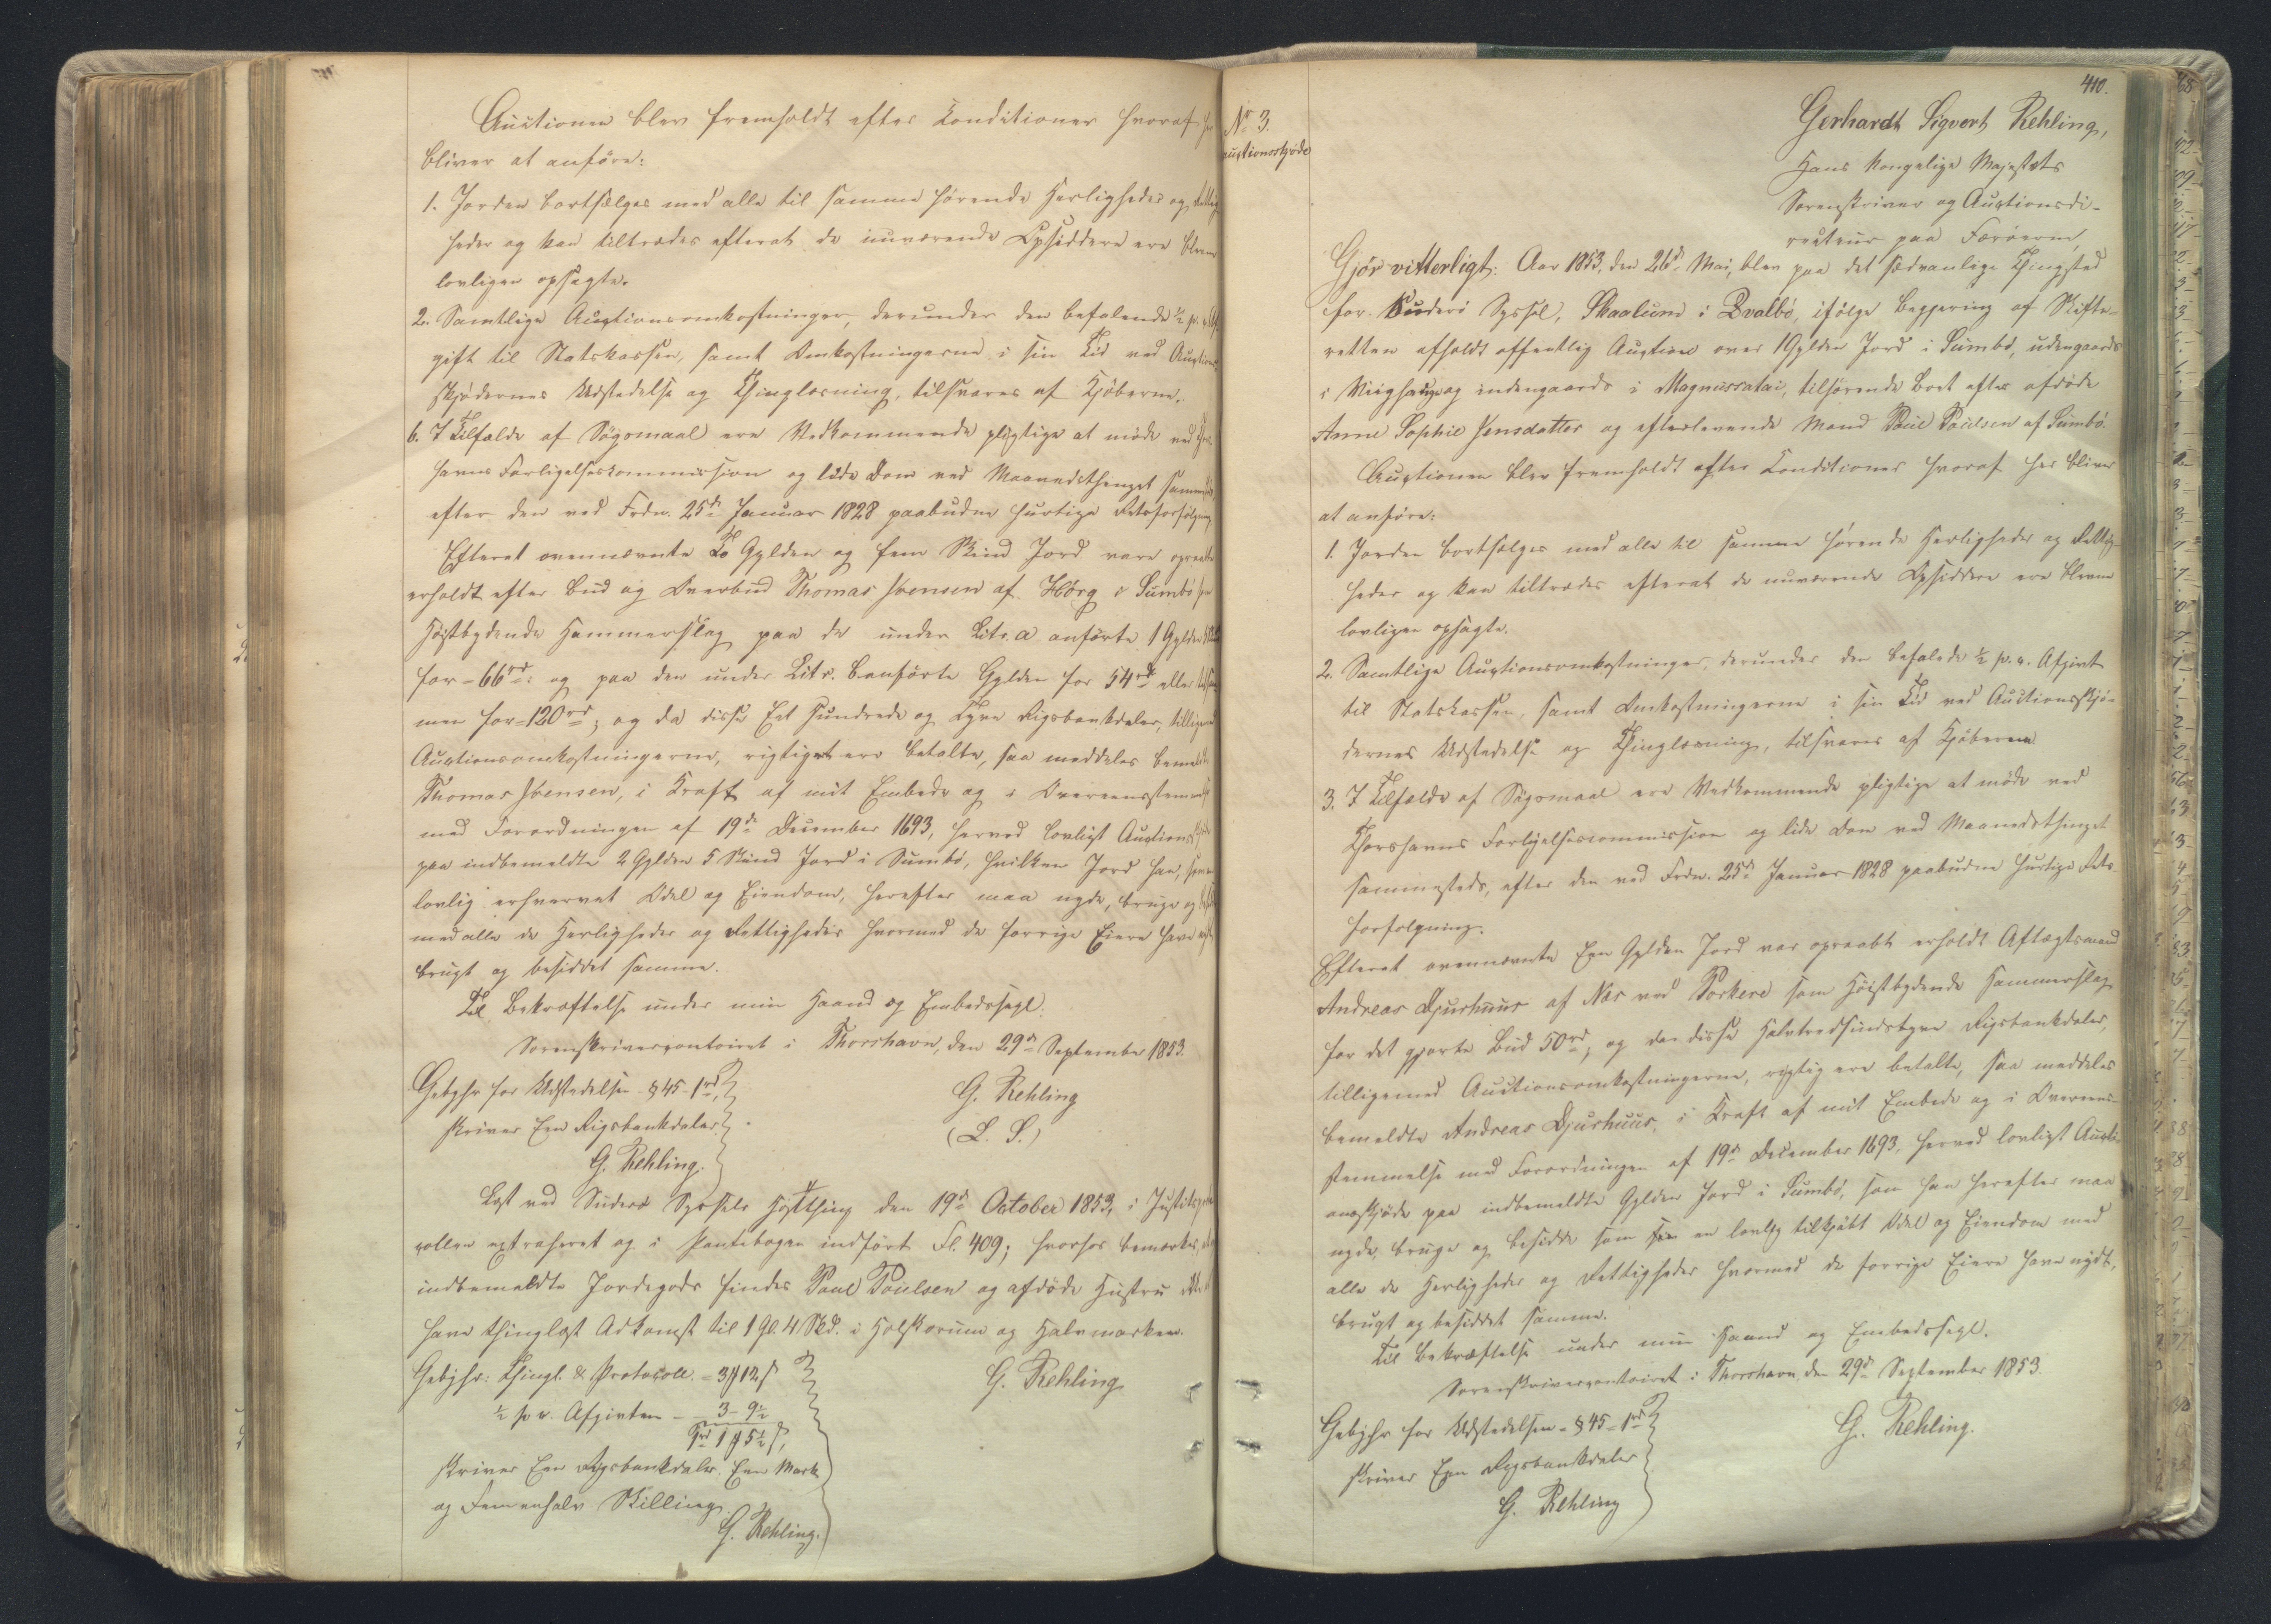 Auctionen blev fremholdt efter Conditioner hvoraf
bliver at anføre:
1. Jorden bortsælges med alle til samme hørende Herligheder og
heder og kan tiltrædes efterat de nuværende Opsiddere ere blevne
lovligen opsagte.
2. Samtlige Auctionsomkostninger, derunder den befalende ½ p. c. Af-
gift til Statskassen, samt Omkostningerne i sin Tid ved Auctions-
skjødernes Udstedelse og Thinglæsning, tilsvares af Kjøberne.
6. I Tilfælde af Søgsmaal ere Vedkommende pligtige at møde ved
havns Forligelseskommission og lide Dom ved Maanedsthinget
efter den ved Frdn. 25de Januar 1828 paabudne hurtige Retsforfølgning.
Efterat ovennævnte To Gylden og fem Skind Jord vare opraabte
erholdt efter Bud og Overbud Thomas Joensen af Hørg i Sumbø
Høistbydende Hammerslag paa de under Litr. a anførte 1 Gylden
for - 66rd: og paa den under Litr. b anførte Gylden for 54rd eller
men for - 120rd; og da disse Eet Hundrede og Tyve Rigsbankdaler, tilligemed
Auctionsomkostningerne, rigtigt ere betalte, saa meddeles bemeldte
Thomas Joensen, i Kraft af mit Embede og i Overeensstemmelse
med Forordningen af 19de December 1693, herved lovligt Auctions
paa indbemeldte 2 Gylden 5 Skind Jord i Sumbø, hvilken Jord han, som
lovlig erhvervet Odel og Eiendom, herefter maa nyde, bruge og
med alle de Herligheder og Rettigheder hvormed de forrige Eiere have
brugt og besiddet samme.
Til Bekræftelse under min Haand og Embedssegl.
Sorenskrivercontoiret i Thorshavn, den 29de September 1853.
Gebyhr for Udstedelsen § 45 - 1rd,
skriver Een Rigsbankdaler.
G. Rehling.
G. Rehling
(L. S.)
Læst ved Suderø Syssels Høstthing den 19de October 1853, i Justitspro-
collen extraheret og i Pantebogen indført Fl. 409; hvorhos bemærkes, at
indbemeldte Jordegods findes Poul Poulsen og afdøde Hustru
have thinglæst Adkomst til 1 Gl. 4 Skd. i Holskorum og Halvmarken.
Gebyhr: Thingl. & Protocoll. - 3 ₻ 12 ß
½ p. c. Afgivten - 3 - 9½
1rd 1 ₻ 5½ ß,
skriver Een Rigsbankdaler, Een Mark
og Femenhalv Skilling.
G. Rehling.
G. Rehling
410.
No 3.
Auctionsskjøde
Gerhardt Sigvert Rehling,
Hans Kongelige Majestæts
Sorenskriver og Auctionsdi-
recteur paa Færøerne,
Gjør vitterligt: Aar 1853, den 26de Mai, blev paa det sædvanlige Thingsted
for Suderø Syssel, Skaalum i Qvalbø, ifølge Begjering af Skifte-
retten afholdt offentlig Auction over 1 Gylden Jord i Sumbø, udengaards
i og indengaards i Magnussatai, tilhørende Boet efter afdøde
Anne Sophie Jensdatter og efterlevende Mand Poul Poulsen af Sumbø.
Auctionen blev fremholdt efter Conditioner hvoraf her bliver
at anføre:
1. Jorden bortsælges med alle til samme hørende Herligheder og Rettig-
heder og kan tiltrædes efterat de nuværende Opsiddere ere blevne
lovligen opsagte.
2. Samtlige Auctionsomkostninger, derunder den befalede ½ p. c. Afgivt
til Statskassen, samt Omkostningerne i sin Tid ved Auctionsskjø-
dernes Udstedelse og Thinglæsning, tilsvares af Kjøberne
3. I Tilfælde af Søgsmaal ere Vedkommende pligtige at møde ved
Thorshavns Forligelsescommission og lide Dom ved Maanedsthinget
sammesteds, efter den ved Frdn. 25de Januar 1828 paabudne hurtige Rets-
forfølgning.
Efterat ovennævnte Een Gylden Jord var opraabt erholdt Aftægtsmand
Andreas Djurhuus af Næs ved Porkere som Høistbydende Hammerslag
for det gjorte Bud 50rd; og da disse Halvtredsindstyve Rigsbankdaler,
tilligemed Auctionsomkostningerne, rigtig ere betalte, saa meddeles
bemeldte Andreas Djurhuus, i Kraft af mit Embede og i Overeens-
stemmelse med Forordningen af 19de December 1693, herved lovligt Aucti-
onsskjøde paa indbemeldte Gylden Jord i Sumbø, som han herefter maa
nyde, bruge og besidde som en lovlig tilkjøbt Odel og Eiendom med
alle de Herligheder og Rettigheder hvormed de forrige Eiere have nydt,
brugt og besiddet samme.
Til Bekræftelse under min Haand og Embedssegl.
Sorenskrivercontoiret i Thorshavn, den 29de September 1853.
Gebyhr for Udstedelsen - § 45 - 1rd
skriver Een Rigsbankdaler
G. Rehling
G. Rehling.